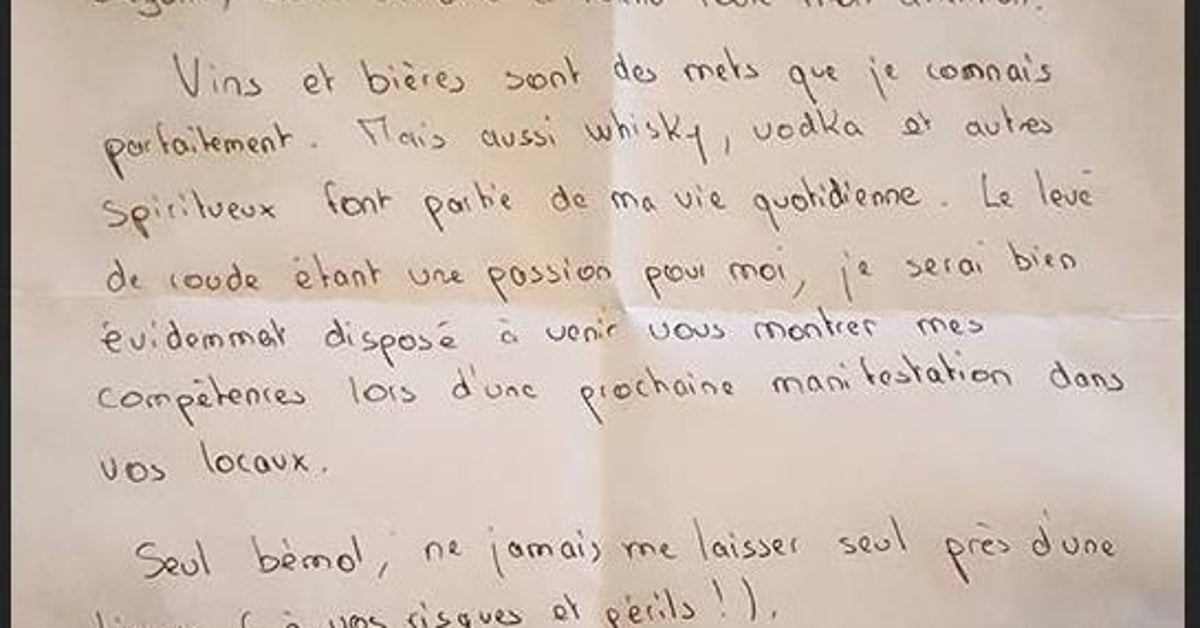 Vins et bières sont des mets que je connais
parfaitement. Mais aussi whisky, vodka et autres
spiritueux font partie de ma vie quotidienne. Le levé
de coude étant une passion pour moi, je serai bien
évidemmat disposé à venir vous montrer mes
compétences lors d'une prochaine manifestation dans
vos locaux.
Seul bémol, ne jamais me laisser seul près d'une
( à vos risques et périls ! ).